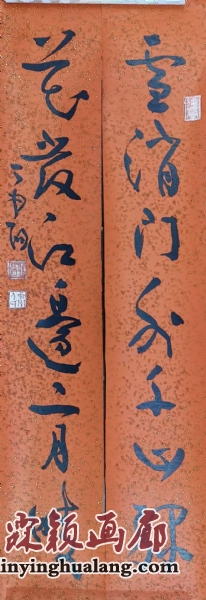 雪消门外千山绿
花發江邊二月晴
颖画廊
inyinghualang.com